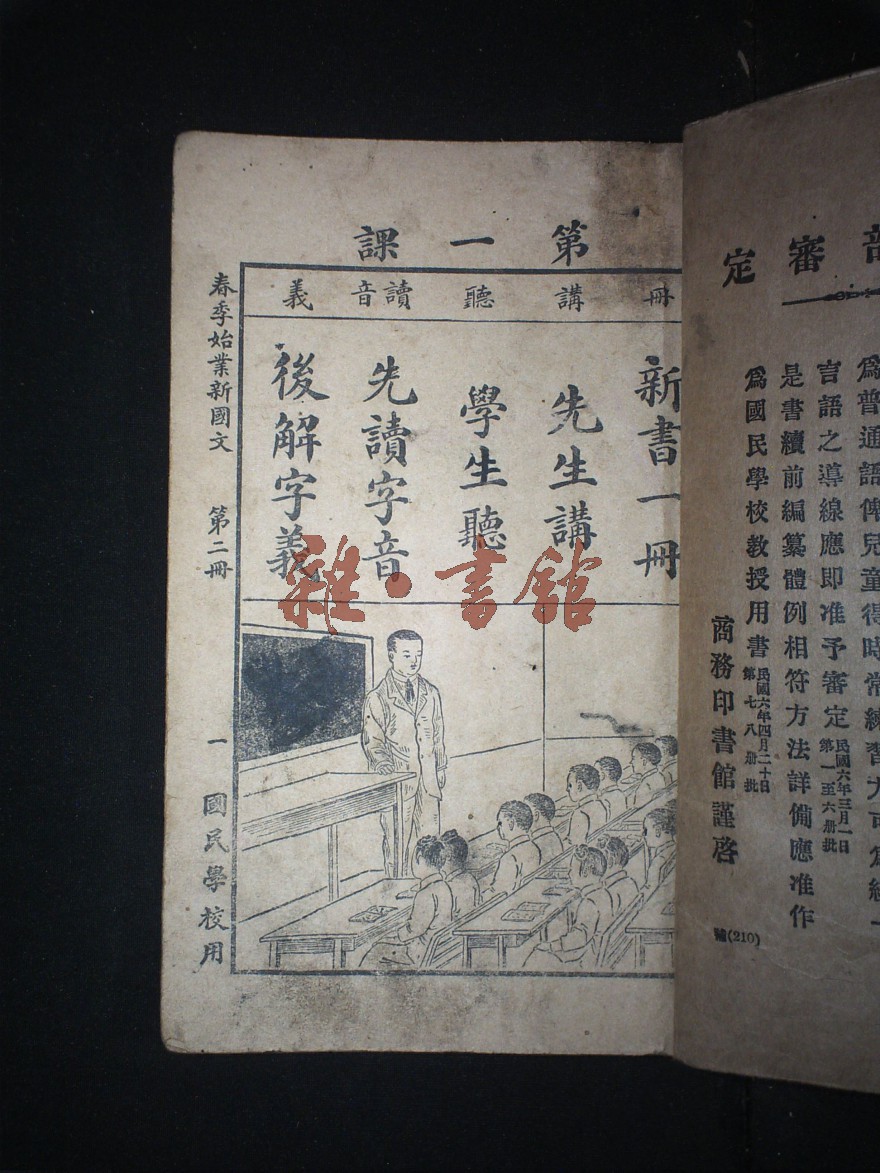 部審定
爲普通語俾兒童得時常練習尤可爲統一
言語之導線應即准予審定民國六年三月一日第一至六册批
是書續前編纂體例相符方法詳備應准作
爲國民學校教授用書民國六年四月二十日第七八册批
商務印書館謹啓
(210)
第一課
冊
講
聽
讀音
義
新書一冊
先生講
學生聽
先讀字音
後解字義
春季始業新國文 第二冊 一 國民學校用
雜·書館